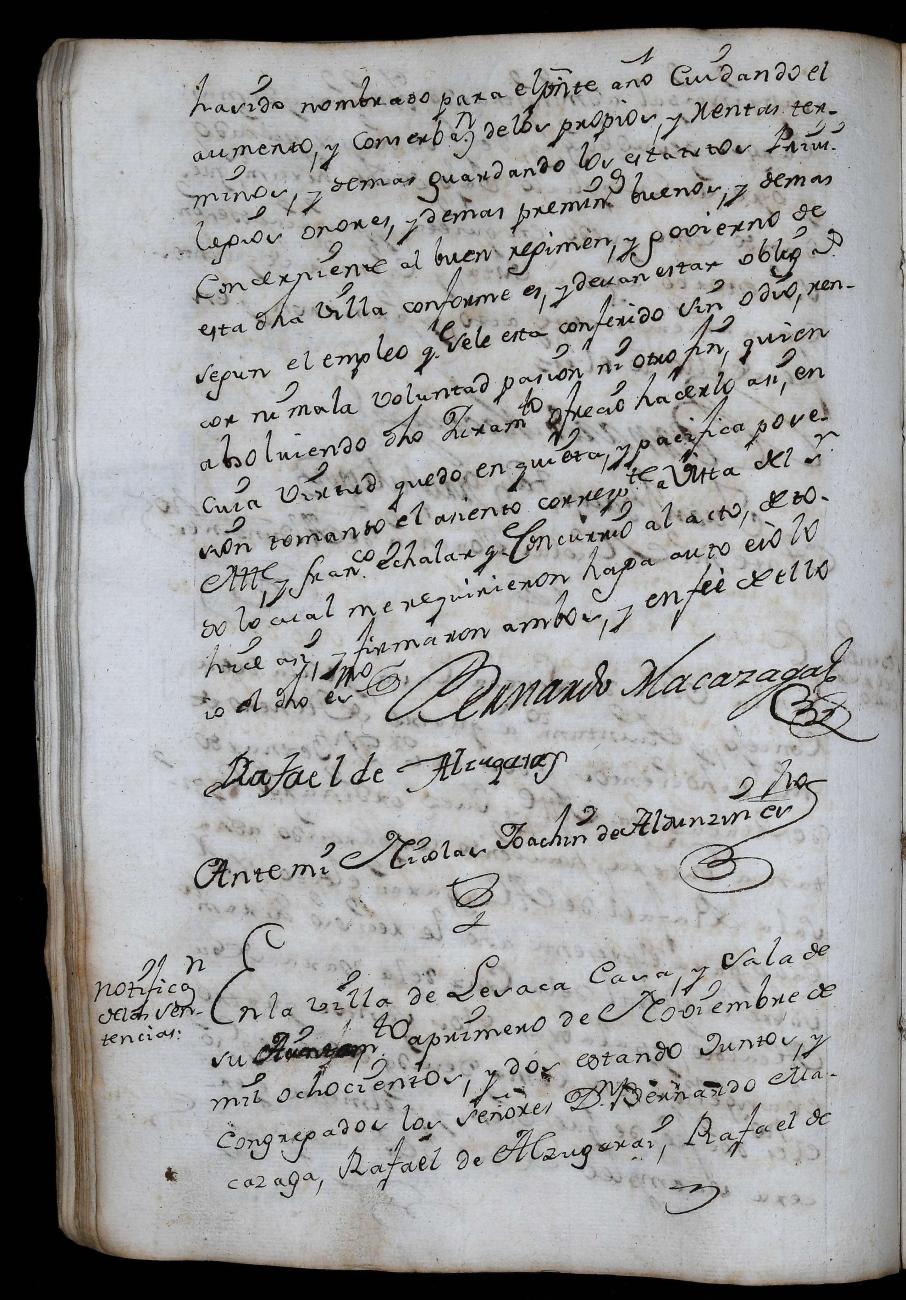 havido nombrado para el pñte año Cuidando el
aumento, y Conserbaon de los propios, y Rentas ter-
minos, y demas guardando los estatutos Privi-
legios onores, y demas buenos, y demas
Concerniente al buen regimen, y govierno de
esta dha villa conforme es, y devan estar obligados
segun el empleo qe sele esta conferido sin odio, ren-
cor ni mala voluntad pasion ni otro fin, quien
absolviendo dho Juramto ofrecio hacerlo asi, en
cuia virtud quedo en quieta, y pacifica pose-
sion tomanto el asiento correspte a Vista del Sr
Alte, y Franco echalar qe Concurrio al acto, de to-
do lo cual me requirieron haga auto e io lo
hice asi, y firmaron ambos, y en feé de ello
io el dho esno
Bernardo Macazaga
Rafael de Alzugaray
Ante mi Nicolas Joachin de Aldunzin esno
notificaon
de las Sen-
tencias:
En la villa de Lesaca Casa, y Sala de
su Ayuntamto a primero de Noviembre de
mil ochocientos, y dos estando Juntos, y
congregados los Señores Dn Bernardo Ma-
cazaga, Rafael de Alzugarai, Rafael de